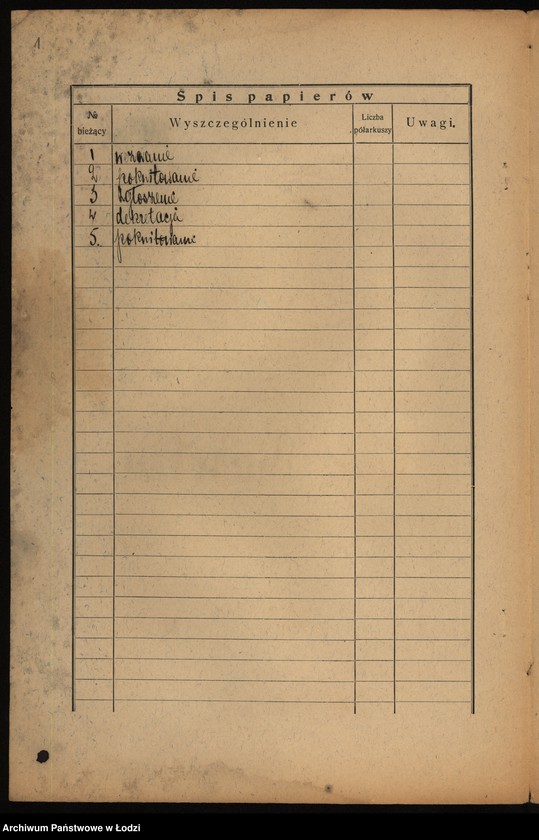 1
Spis papierów
№ bieżący
Wyszczególnienie
Liczba półarkuszy
Uwagi.
1 wezwanie
2 pokwitowanie
3 zgłoszenie
4 dekretacja
5. pokwitowanie
Archiwum Państwowe w Łodzi